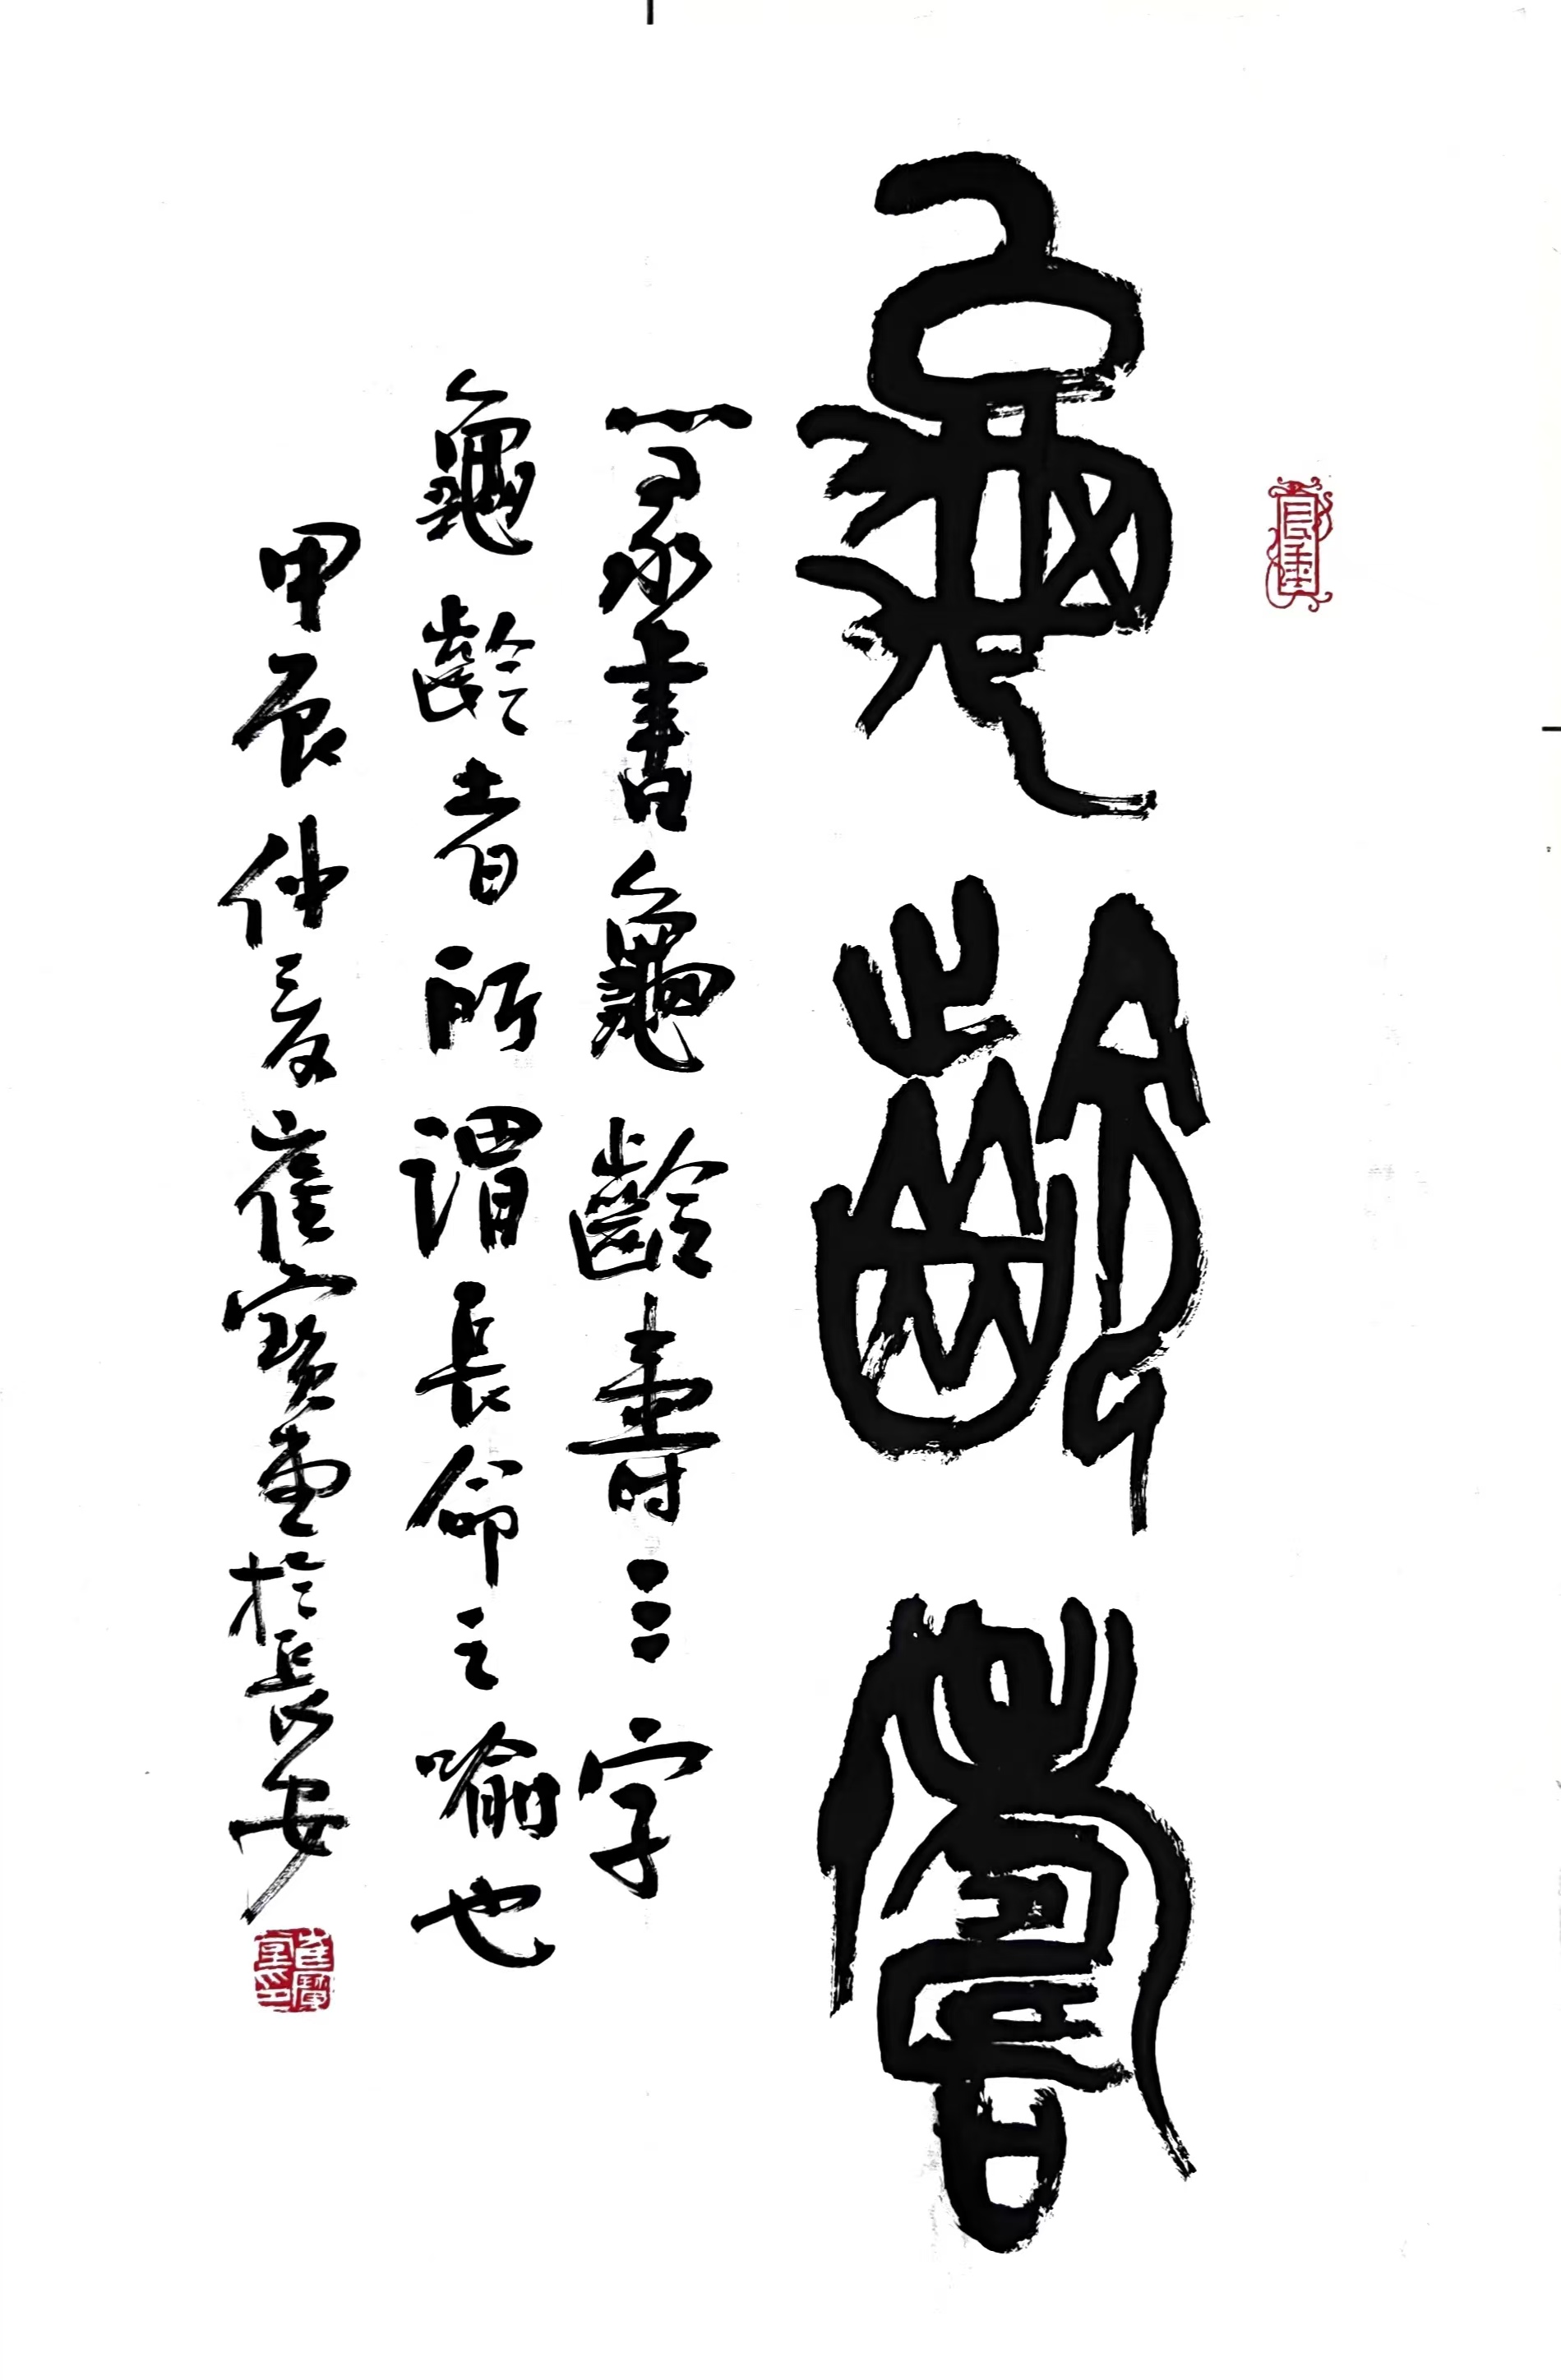 龜齡壽
篆書龜齡壽三字
龜齡者所謂長命之喻也
甲辰仲夏崔寶堂於長安
崔寶堂印